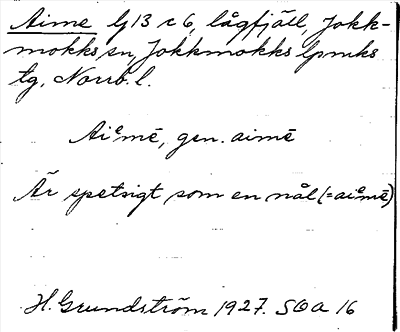 Aime G13 c 6, lågfjäll, Jokk-
mokks sn, Jokkmokks lpmks
tg, Norrb. l.
Aiᵉmē, gen. aimē
Är spetsigt som en nål (= aiᵉmē)
H. Grundström 1927. SOA 16